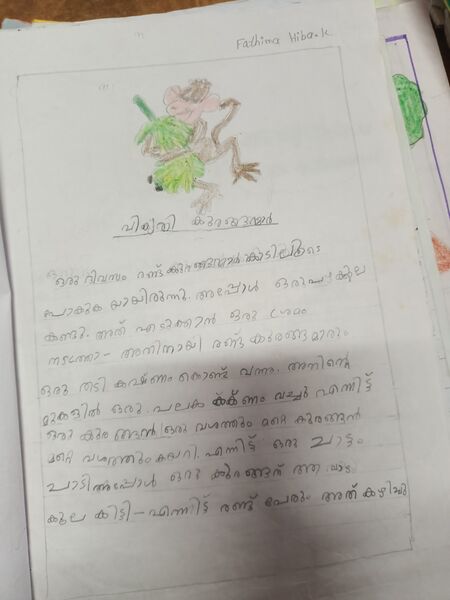 Fathima Hiba.k
വികൃതി കുരങ്ങന്മാർ
ഒരു ദിവസം രണ്ട് കുരങ്ങന്മാർ കാടിലൂടെ
പോകുക യായിരുന്നു. അപ്പോൾ ഒരു കുല
കണ്ടു. അത് എടുക്കാൻ ഒരു ശ്രമം
നടത്താ- അതിനായി രണ്ട് കുരങ്ങന്മാരും
ഒരു തടി കഷ്ണം കൊണ്ട് വന്നു. അതിന്റെ
മുകളിൽ ഒരു. പലക വച്ചു എന്നിട്ട്
ഒരു കുര ങ്ങൻ ഒരു വശത്തും മറ്റെ കുരങ്ങൻ
മറ്റെ വശത്തും കയറി. എന്നിട്ട് ഒരു ചാട്ടം
ചാടി അപ്പോൾ ഒരു കുരങ്ങന് ആ
കുല കിട്ടി - എന്നിട്ട് രണ്ട് പേരും അത് കഴിച്ചു